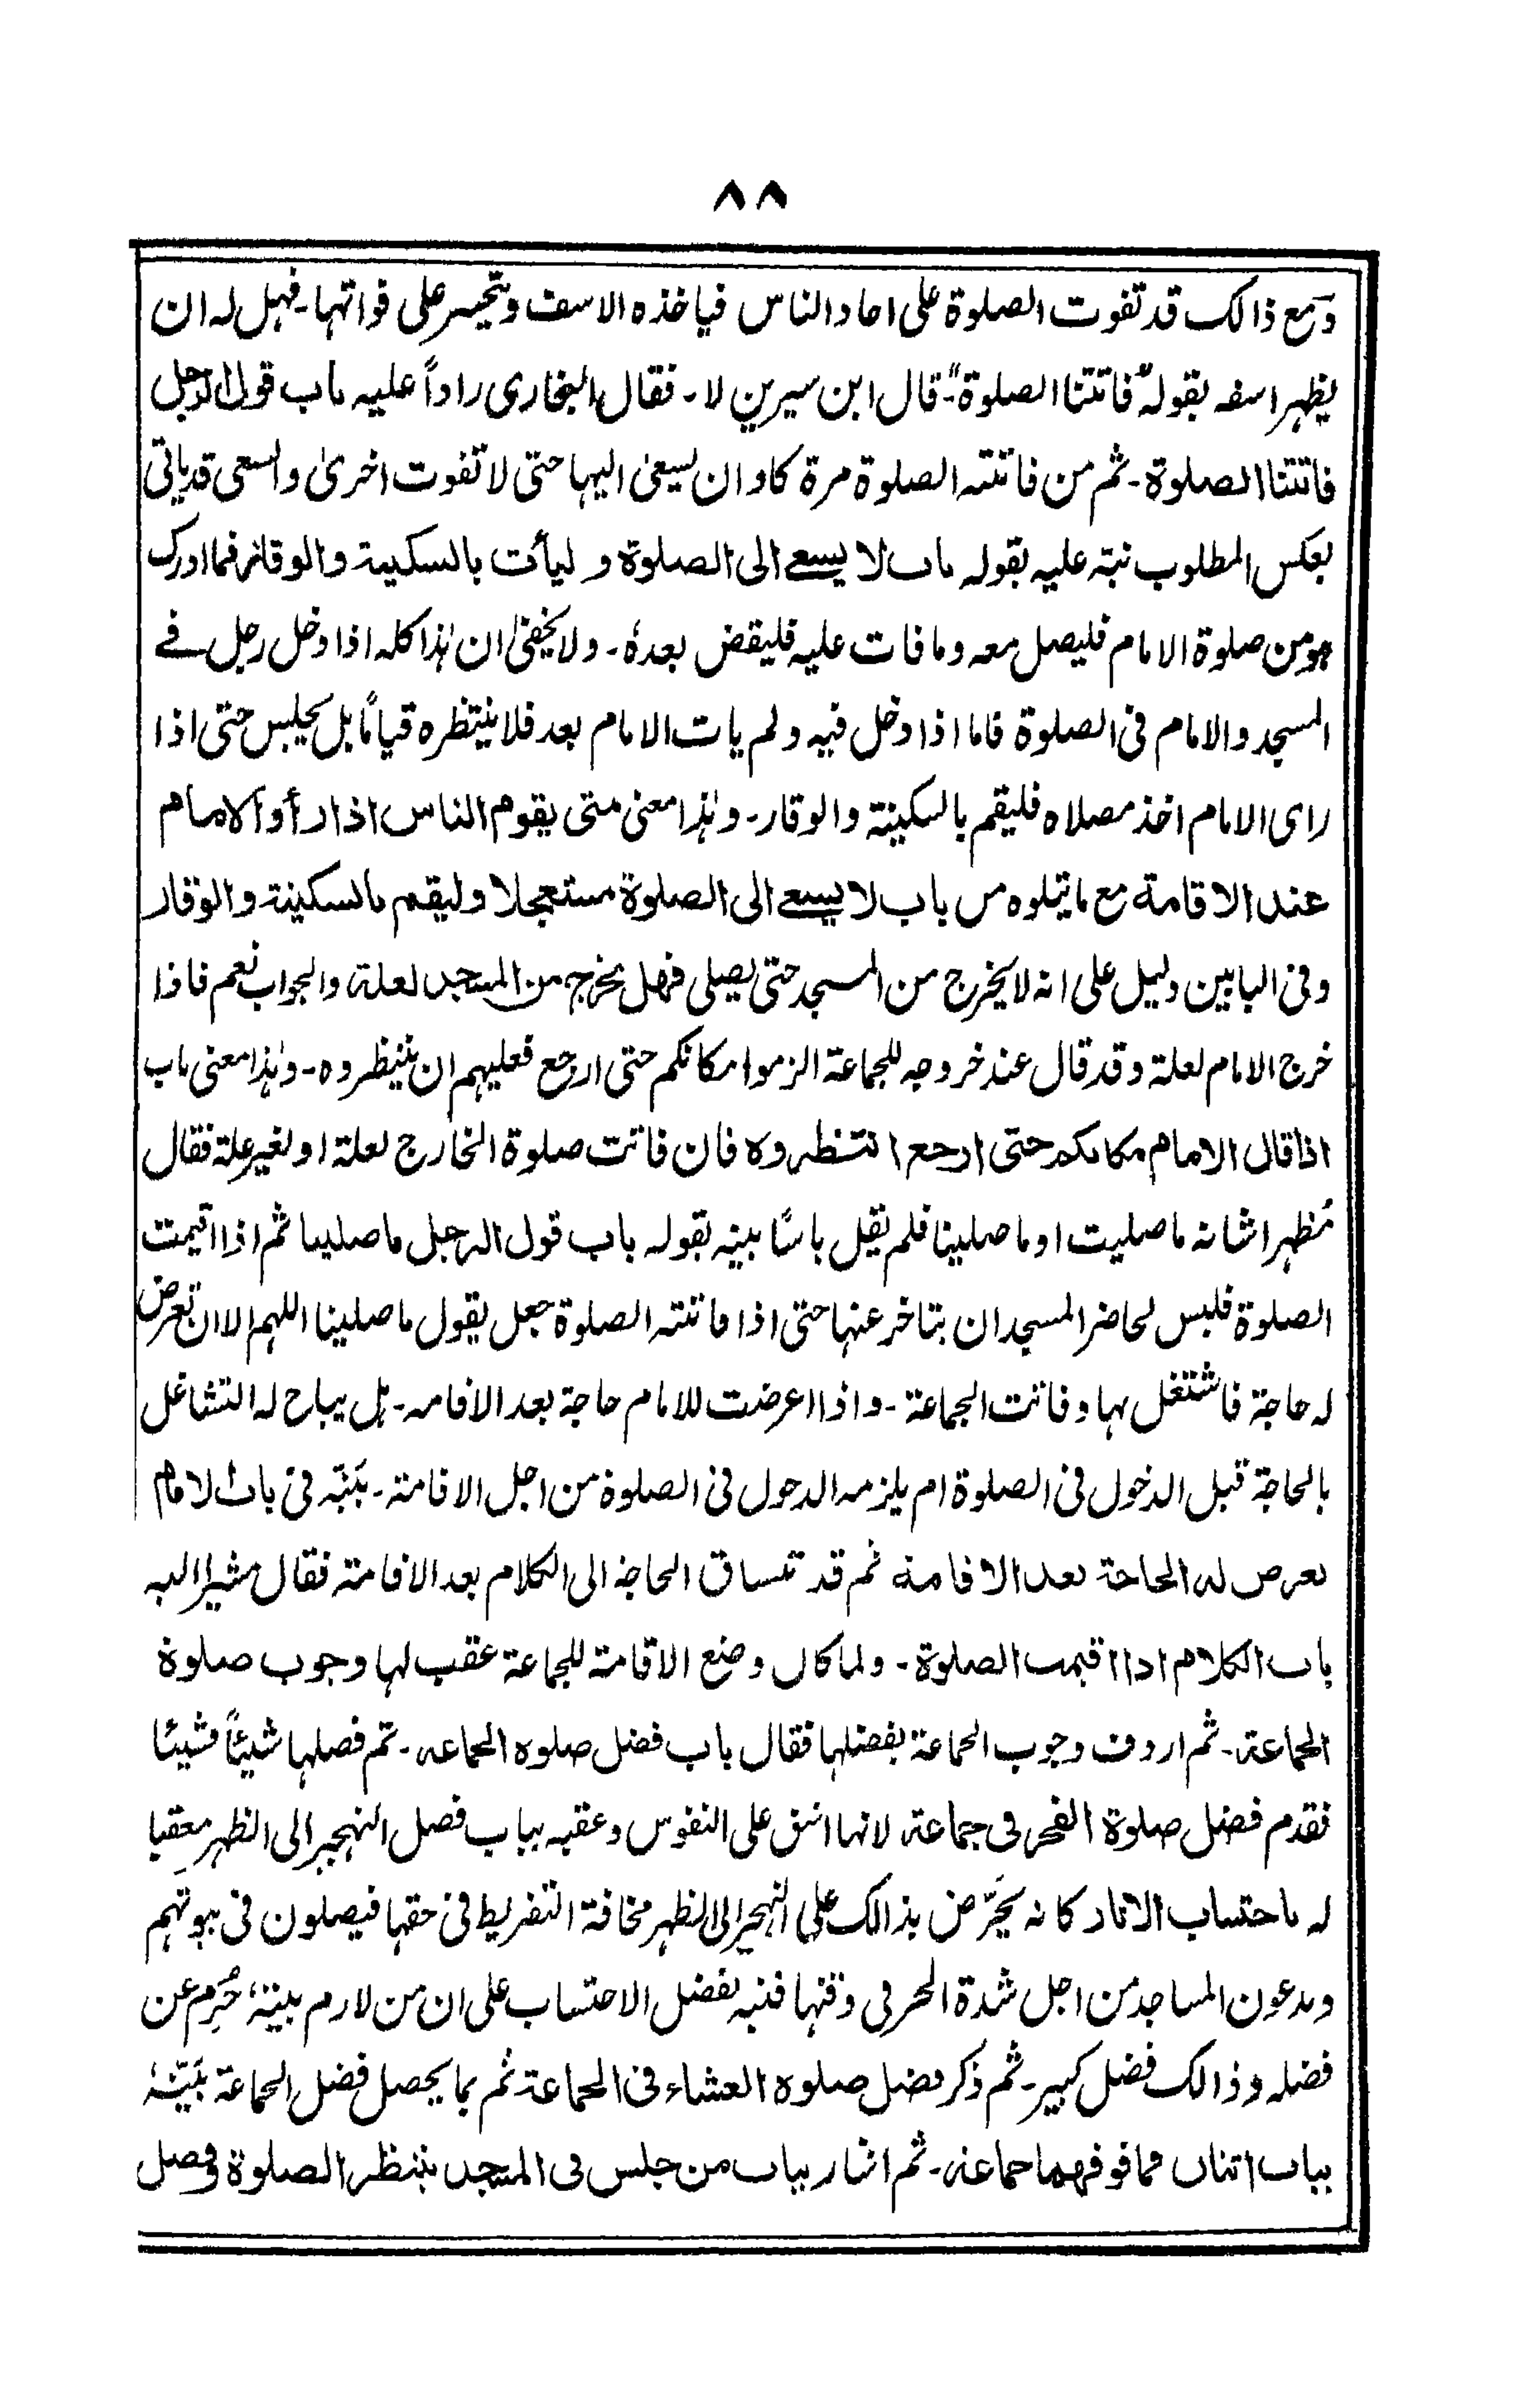 ٨٨
ومع ذالك قد تفوت الصلوة على احاد الناس فياخذه الاسف ويتحسر على فواتها۔ فهل له ان
يظهر اسفه بقوله "فاتتنا الصلوة"۔ قال ابن سيرين لا۔ فقال البخارى راداً عليه باب قول الرجل
فاتتنا الصلوة۔ ثم من فاتته الصلوة مرة كاد ان يسعىٰ اليها حتى لا تفوت اخرىٰ والسعى قد ياتى
بعكس المطلوب نبّه عليه بقوله باب لا يسعے الى الصلوة و ليأت بالسكينة والوقار فما ادرك
هو من صلوة الامام فليصل معه وما فات عليه فليقض بعدهٗ۔ ولا يخفىٰ ان هٰذا كله اذا دخل رجل فے
المسجد والامام فى الصلوة فاما اذا دخل فيه ولم يات الامام بعد فلا ينتظره قياماً بل يجلس حتى اذا
راى الامام اخذ مصلاه فليقم بالسكينة والوقار۔ وهٰذا معنى متى يقوم الناس اذا رأوا الامام
عند الاقامة مع ما يتلوه من باب لا يسعے الى الصلوة مستعجلا وليقم بالسكينة والوقار
وفى البابين دليل على انه لا يخرج من المسجد حتى يصلى فهل يخرج من المسجد لعلة والجواب نعم فاذا
خرج الامام لعلة وقد قال عند خروجه للجماعة الزموا مكانكم حتى ارجع فعليهم ان ينتظروه۔ وهٰذا معنى باب
اذا قال الامام مكانكم حتى ارجع انتظروه فان فاتت صلوة الخارج لعلة او لغير علة فقال
مُظهرا شانه ما صليت او ما صلينا فلم يقل باسًا بينه بقوله باب قول الرجل ما صلينا ثم اذا اقيمت
الصلوة فليس لحاضر المسجد ان يتاخر عنها حتى اذا فاتته الصلوة جعل يقول ما صلينا اللهم الا ان تعرض
له حاجة فاشتغل بها وفاتت الجماعة۔ واذا اعرضت للامام حاجة بعد الاقامه۔ هل يباح له التشاغل
بالحاجة قبل الدخول فى الصلوة ام يلزمه الدخول فى الصلوة من اجل الاقامة۔ بَيَّنَه فى باب الامام
تعرض له الحاجة بعد الاقامة ثم قد تنساق الحاجة الى الكلام بعد الاقامة فقال مشيرا اليه
باب الكلام اذا اقيمت الصلوة۔ ولما كان وضع الاقامة للجماعة عقب لها وجوب صلوة
الجماعة۔ ثم اردف وجوب الجماعة بفضلها فقال باب فضل صلوه الجماعه۔ ثم فصلها شيئاً فشيئا
فقدم فضل صلوة الفجر فى جماعة لانها اشق على النفوس وعقبه بباب فضل التهجير الى الظهر معقبا
له باحتساب الاثار كانه يحرّض بذالك على التهجير الى الظهر مخافة التفريط فى حقها فيصلون فى بيوتهم
ويدعون المساجد من اجل شدة الحر فى وقتها فنبه بفضل الاحتساب على ان من لازم بيتهٗ حُرِم عن
فضله وذالك فضل كبير۔ ثم ذكر فضل صلوة العشاء فى الجماعة ثم بما يحصل فضل الجماعة بَيَّنَهٗ
بباب اثنان فما فوقهما جماعة۔ ثم اشار بباب من جلس فى المسجد ينتظر الصلوة وفضل